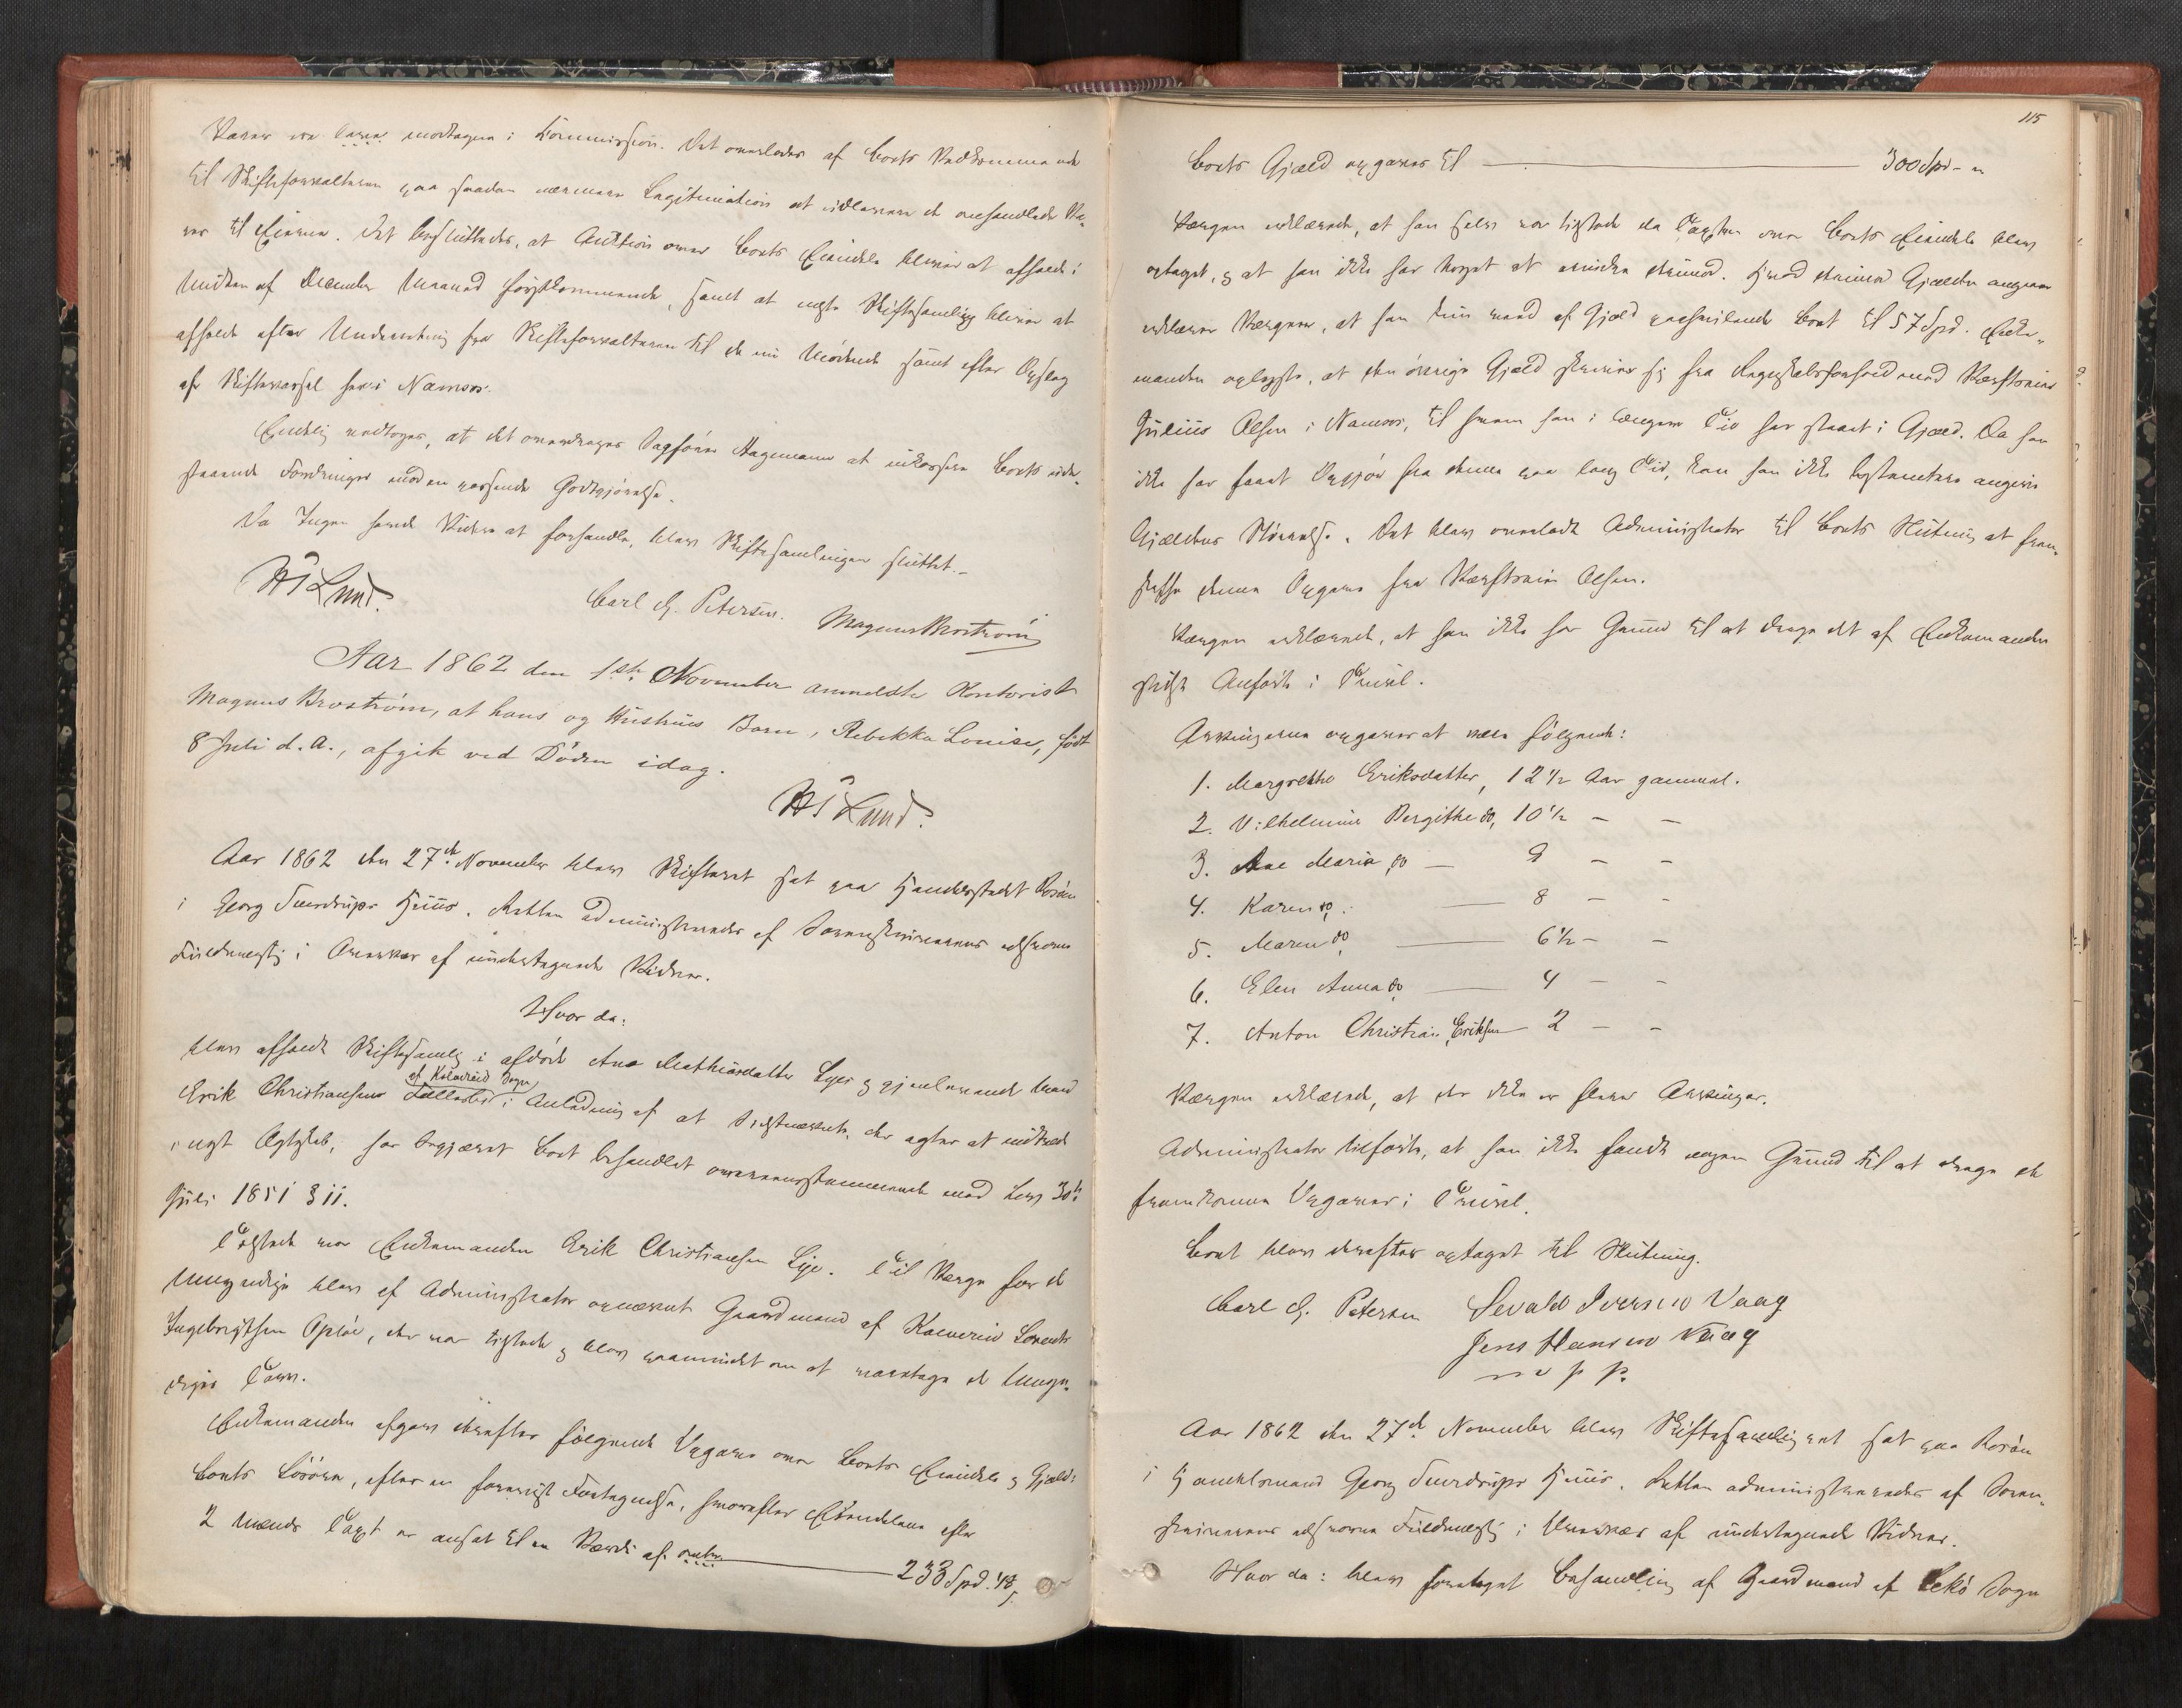 Varer var mortagen i Kommission. Det overlades af Boets Vedkommende
til Skifteforvalteren paa saadan nærmere Legitimation at udlevere de omhandlede Va„
rer til Eieren. Det besluttedes, at Auktion over Boets Eiendele bliver at afholde i
Midten af December Maaned førstkommende, samt at næste Skiftesamling bliver at
afholde efter Underretning fra Skifteforvalteren til de nu Mødende samt efter Opslag
af Skiftevarsel her i Namsos.
Endelig vedtoges, at det overdrages Sagfører Hagemann at inkassere Boets ude„
staaende Fordringer mod en passende Godtgjørelse.
Da Ingen havde Videre at forhandle, blev Skiftesamlingen sluttet.-
Lund.
Carl G. Petersen. Magnus Brostrøm
Aar 1862 den 1ste November anmeldte Kontorist
Magnus Brostrøm, at hans og Hustrues Barn, Rebekka Louise, født
8 Juli d. A., afgik ved Døden idag.
Lund.
Aar 1862 den 27de November blev Skifteret sat paa Handelsstedet Rosøen
i Georg Sverdrups Huus. Retten administreredes af Sorenskriverens edsvorne
Fuldmægtig i Overvær af undertegnede Vidner.
Hvor da:
blev afholdt Skiftesamlg i afdøde Ane Mathiasdatter Lyes og gjenlevende Mand
af Kolvereid Sogn
Erik Christiansens Fællesbo i Anledning af at Sidstnævnte, der agter at indtræde
i nyt Ægteskab, har begjæret Boet behandlet overeensstemmende med Lov 30te
Juli 1851 § 11.
Tilstede var Enkemanden Erik Christiansen Lye. Til Værge for de
Umyndige blev af Administrator opnævnt Gaardmand af Kolvereid Lorents
Ingebrigtsen Opløe, der var tilstede og blev paamindet om at varetage de Umyn„
diges Tarv.
Enkemanden afgav derefter følgende Opgave over Boets Eiendele og Gjæld:
Boets Løsøre, efter en foreviist Fortegnelse, hvorefter Eiendelene efter
2 Mænds Taxt er ansat til en Værdi af 233 Spd. 48
115
Boets Gjæld opgaves til 300 Spd - „
Værgen erklærede, at han selv var tilstede da Taxten over Boets Eiendele blev
optaget, og at han ikke har Noget at erindre derimod. Hvad derimod Gjælden angaaer
erklærer Værgen, at han kun veed af Gjæld paahvilende Boet til 57 Spd. Enke„
manden oplyste, at den øvrige Gjæld skriver sig fra Regnskabsforhold med
Julius Olsen i Namsos, til hvem han i længere Tid har staaet i Gjæld. Da han
ikke har faaet Opgjør fra denne paa lang Tid, kan han ikke bestemtere angive
Gjældens Størrelse. Det blev overladt Administrator til Boets Slutning at frem„
skaffe denne Opgave fra Olsen.
Værgen erklærede, at han ikke har Grund til at drage det af Enkemanden
sidst Anførte i Tvivl.
Arvingerne opgaves at være følgende:
1. Margrethe Eriksdatter, 12½ Aar gammel.
2. Vilhelmine Bergithe do, 10½ - -
3. Ane Maria do — 9 - -
4. Karen do. — 8 - -
5. Maren do, — 6½ - -
6. Elen Anna do — 4 - -
7. Anton Christian Eriksen — 2 - -
Værgen erklærede, at der ikke er flere Arvinger.
Administrator tilførte, at han ikke fandt nogen Grund til at drage de
fremkomne Opgaver i Tvivl.
Boet blev derefter optaget til Slutning.
Carl G. Petersen Sevald Iversen Vaag
Jens Hansen Vaag
m p p.
Aar 1862 den 27de November blev Skiftesamling ret sat paa Rosøen
i Handelsmand Georg Sverdrups Huus. Retten administreredes af Soren„
skriverens edsvorne Fuldmægtig i Overvær af undertegnede Vidner.
Hvor da: blev foretaget Behandling af Gaardmand af Lekø Sogn